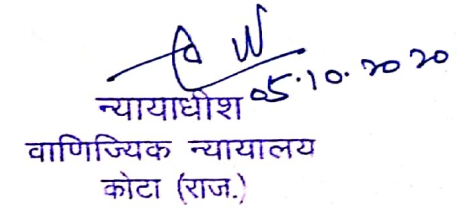 05.10.2020
न्यायाधीश
वाणिज्यिक न्यायालय
कोटा (राज.)